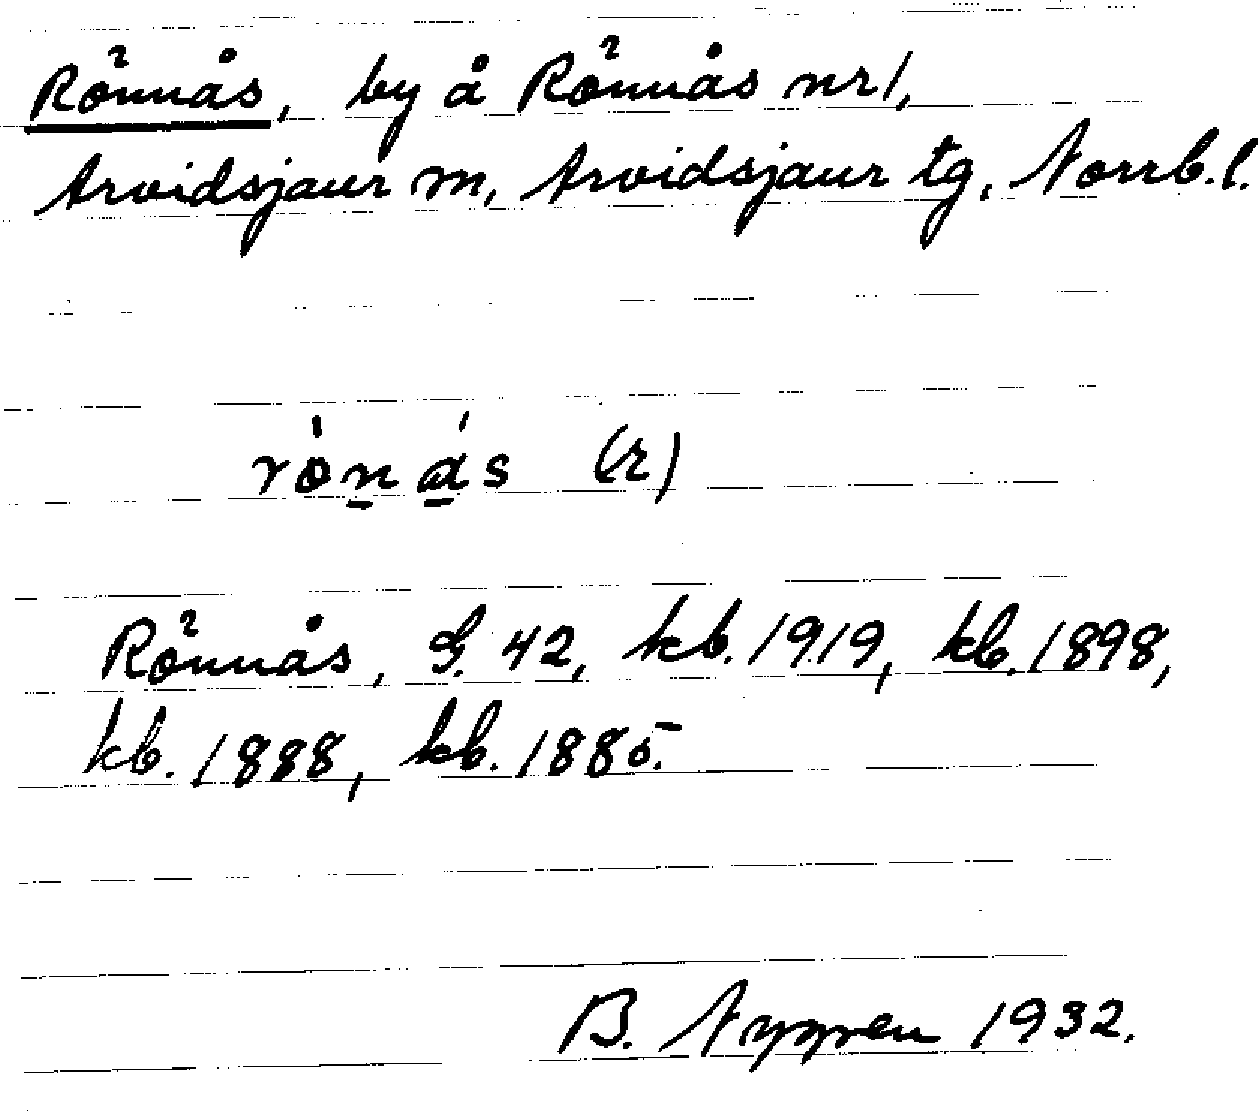 Rönnås, by å Rönnås nr 1,
Arvidsjaur m, Arvidsjaur tg, Norrb. l.
rö́ná̱s (r)
Rönnås, G. 42, kb. 1919, kb. 1898,
kb. 1888, kb. 1885.
B. Nygren 1932.